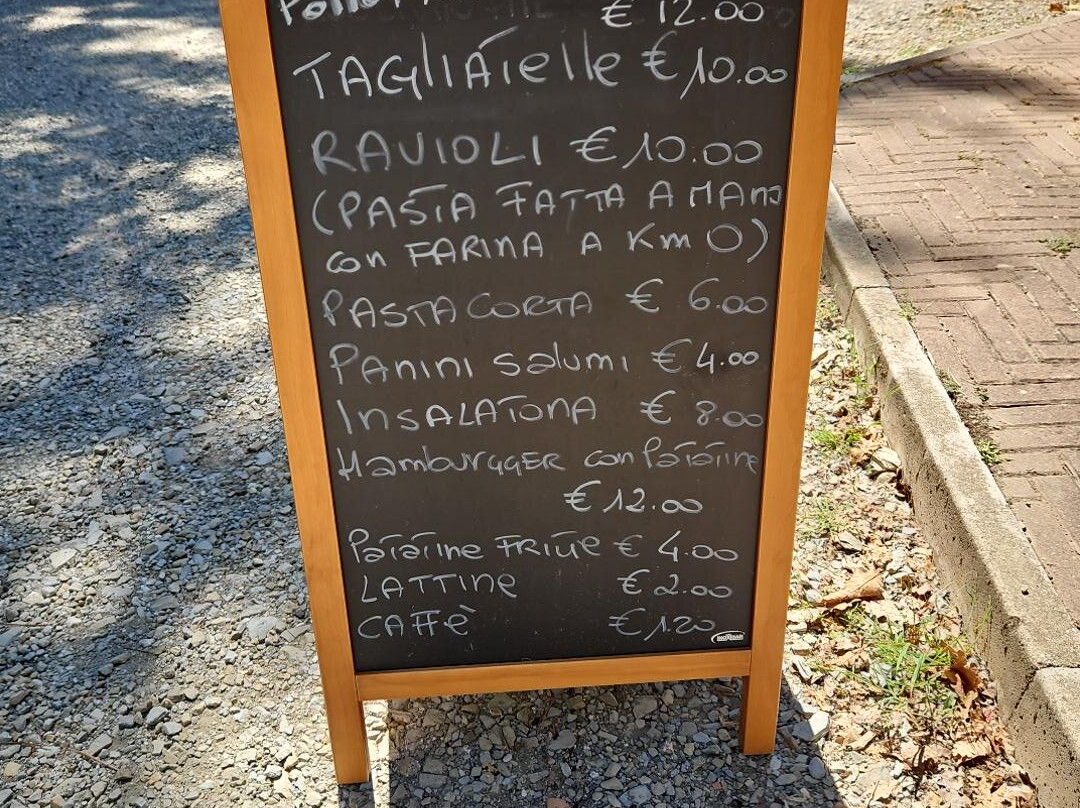 € 12.00
TAGLIATelle € 10.00
RAVIOLI € 10.00
(PASTA FATTA A MANO
con FARINA A Km 0)
PASTA CORTA € 6.00
PANINI SALUMI € 4.00
INSALATONA € 8.00
HambURGGER con Patatine
€ 12.00
Patatine FRITTE € 4.00
LATTINE € 2.00
CAFFÈ € 1.20